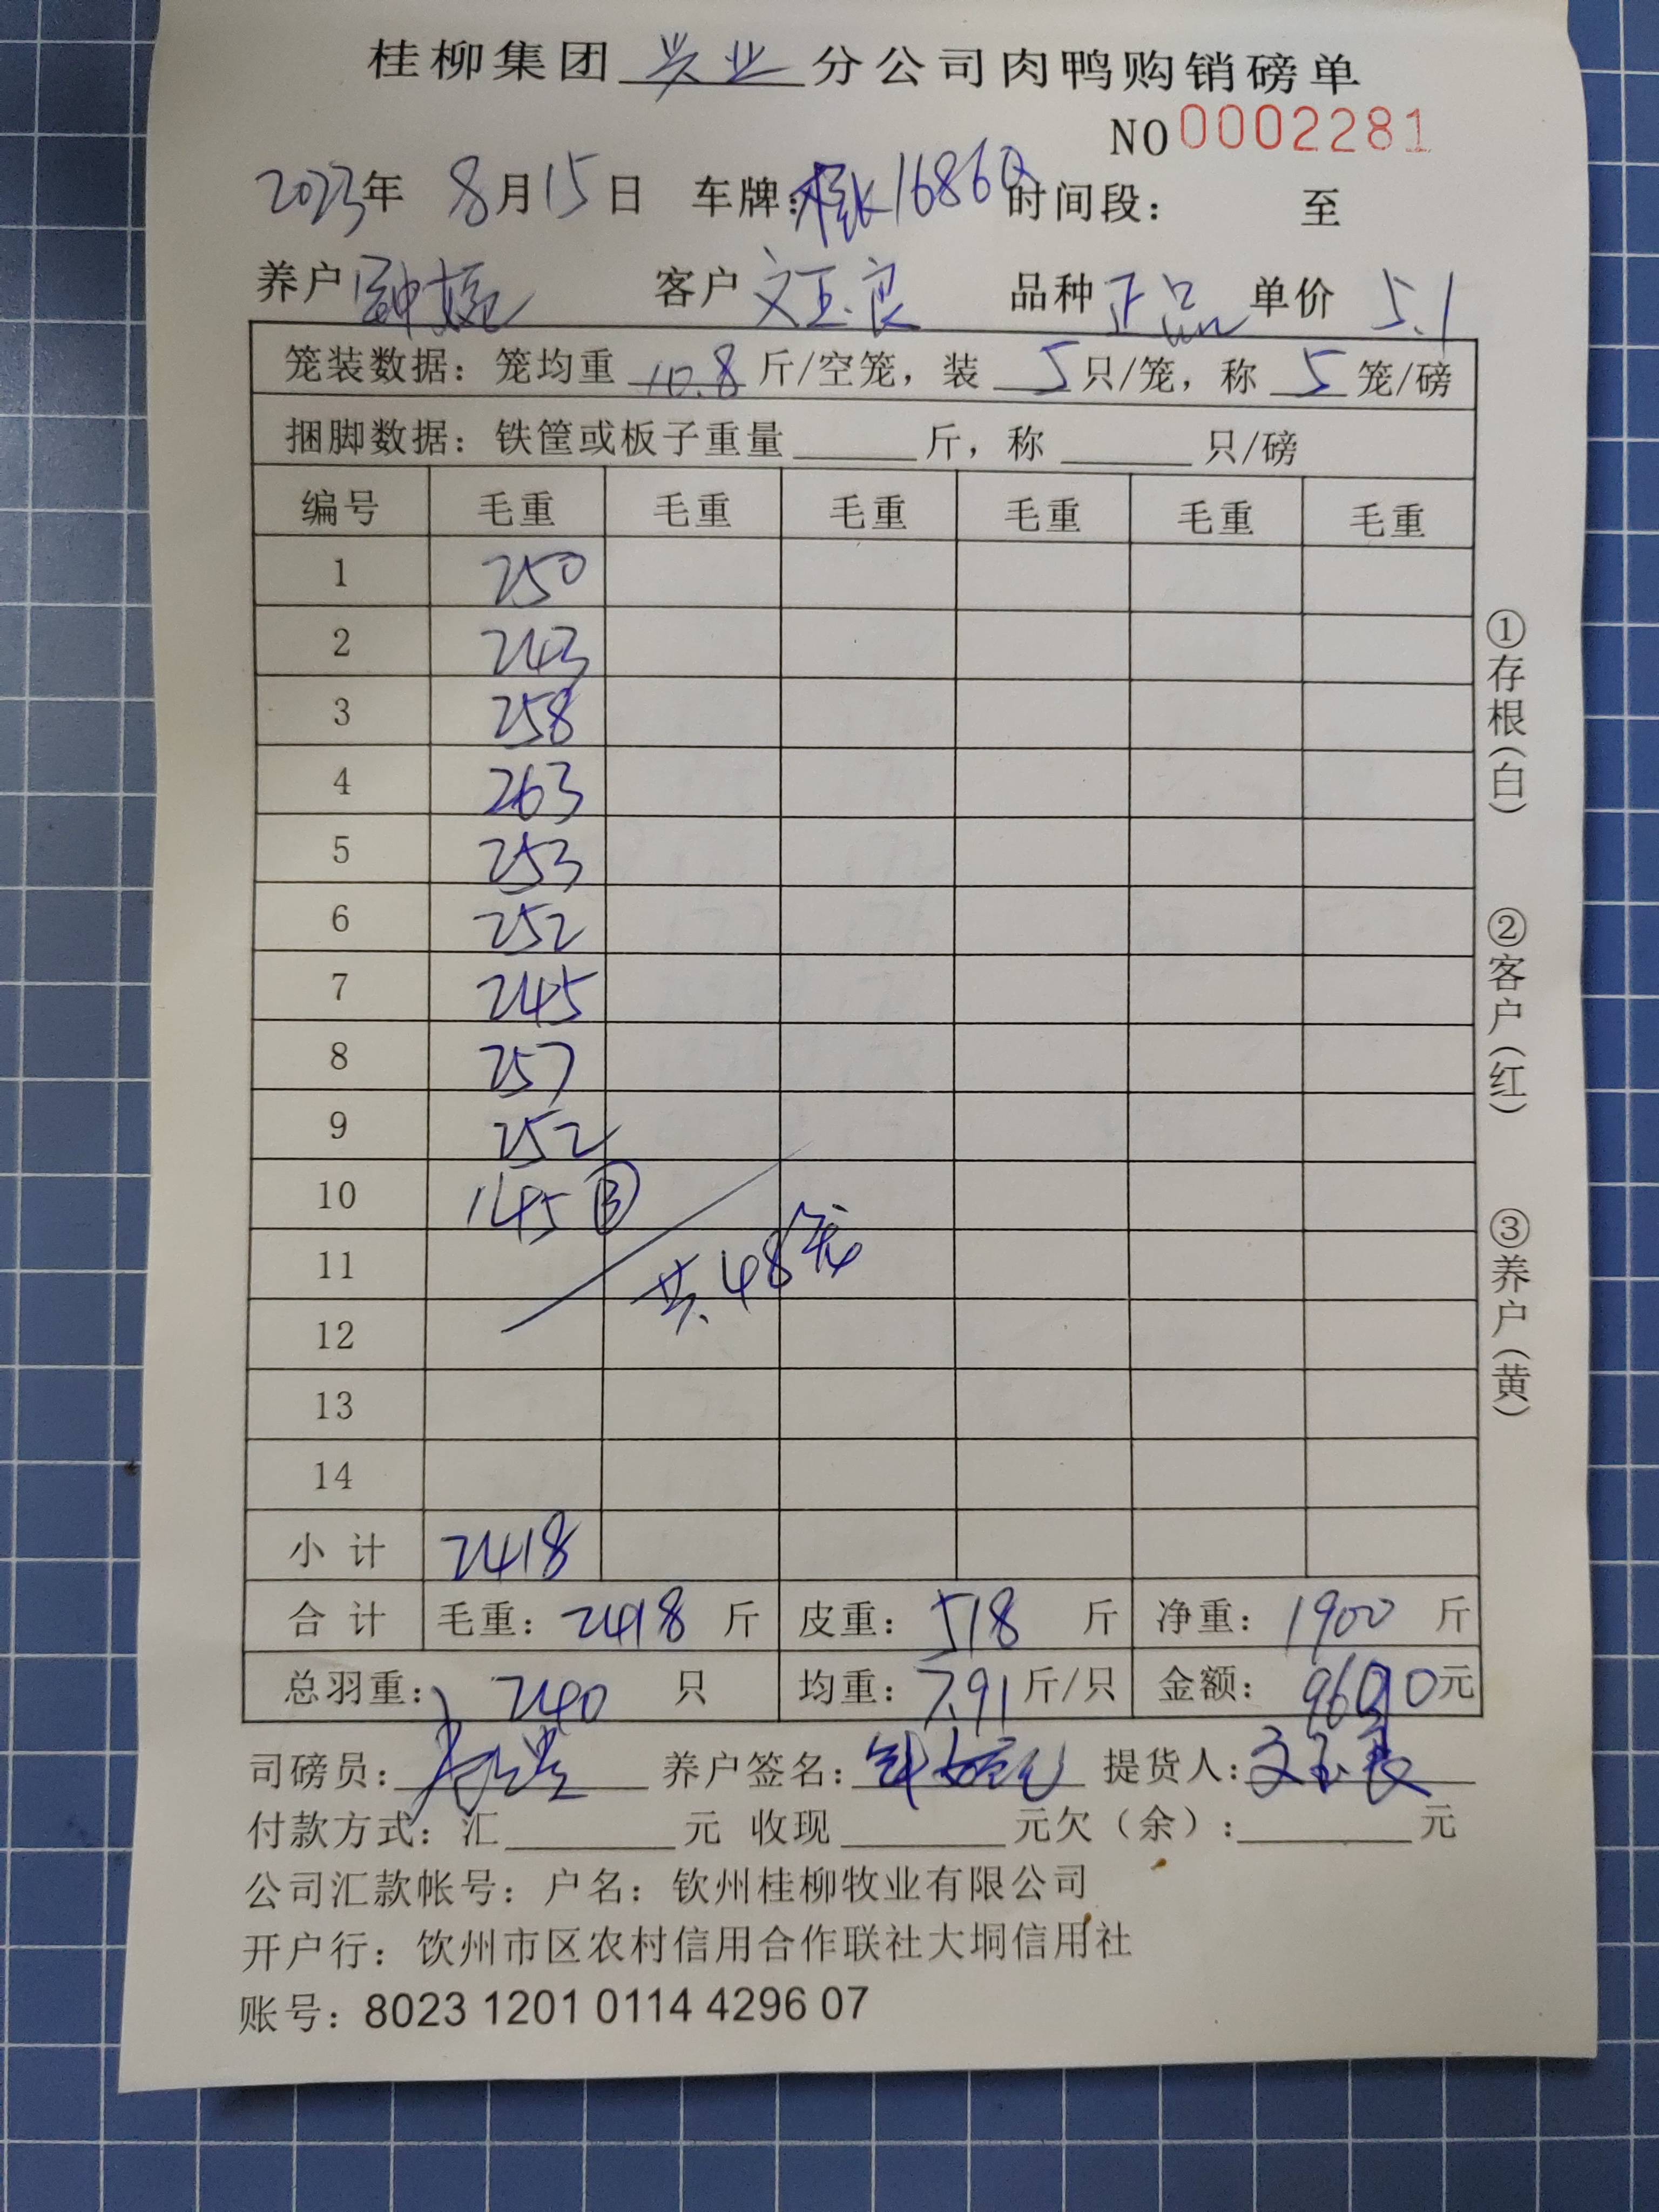 桂柳集团兴业分公司肉鸭购销磅单
NO 0002281
2023年 8月15日 车牌:桂K16860 时间段: 至
养户 钟婉 客户 文玉良 品种 正品 单价 5.1
笼装数据: 笼均重 10.8 斤/空笼, 装 5 只/笼, 称 5 笼/磅
捆脚数据: 铁筐或板子重量 斤, 称 只/磅
编号 毛重 毛重 毛重 毛重 毛重 毛重
1 250
2 243
3 258
4 263
5 253
6 252
7 245
8 257
9 252
10 145 ③
11 共48笼
12
13
14
小计 2418
合计 毛重: 2418 斤 皮重: 518 斤 净重: 1900 斤
总羽重: 240 只 均重: 7.91 斤/只 金额: 9690元
司磅员: 养户签名: 钟婉 提货人: 文玉良
付款方式: 汇 元 收现 元欠(余): 元
公司汇款帐号: 户名: 钦州桂柳牧业有限公司
开户行: 钦州市区农村信用合作联社大垌信用社
账号: 8023 1201 0114 4296 07
①存根(白)
②客户(红)
③养户(黄)